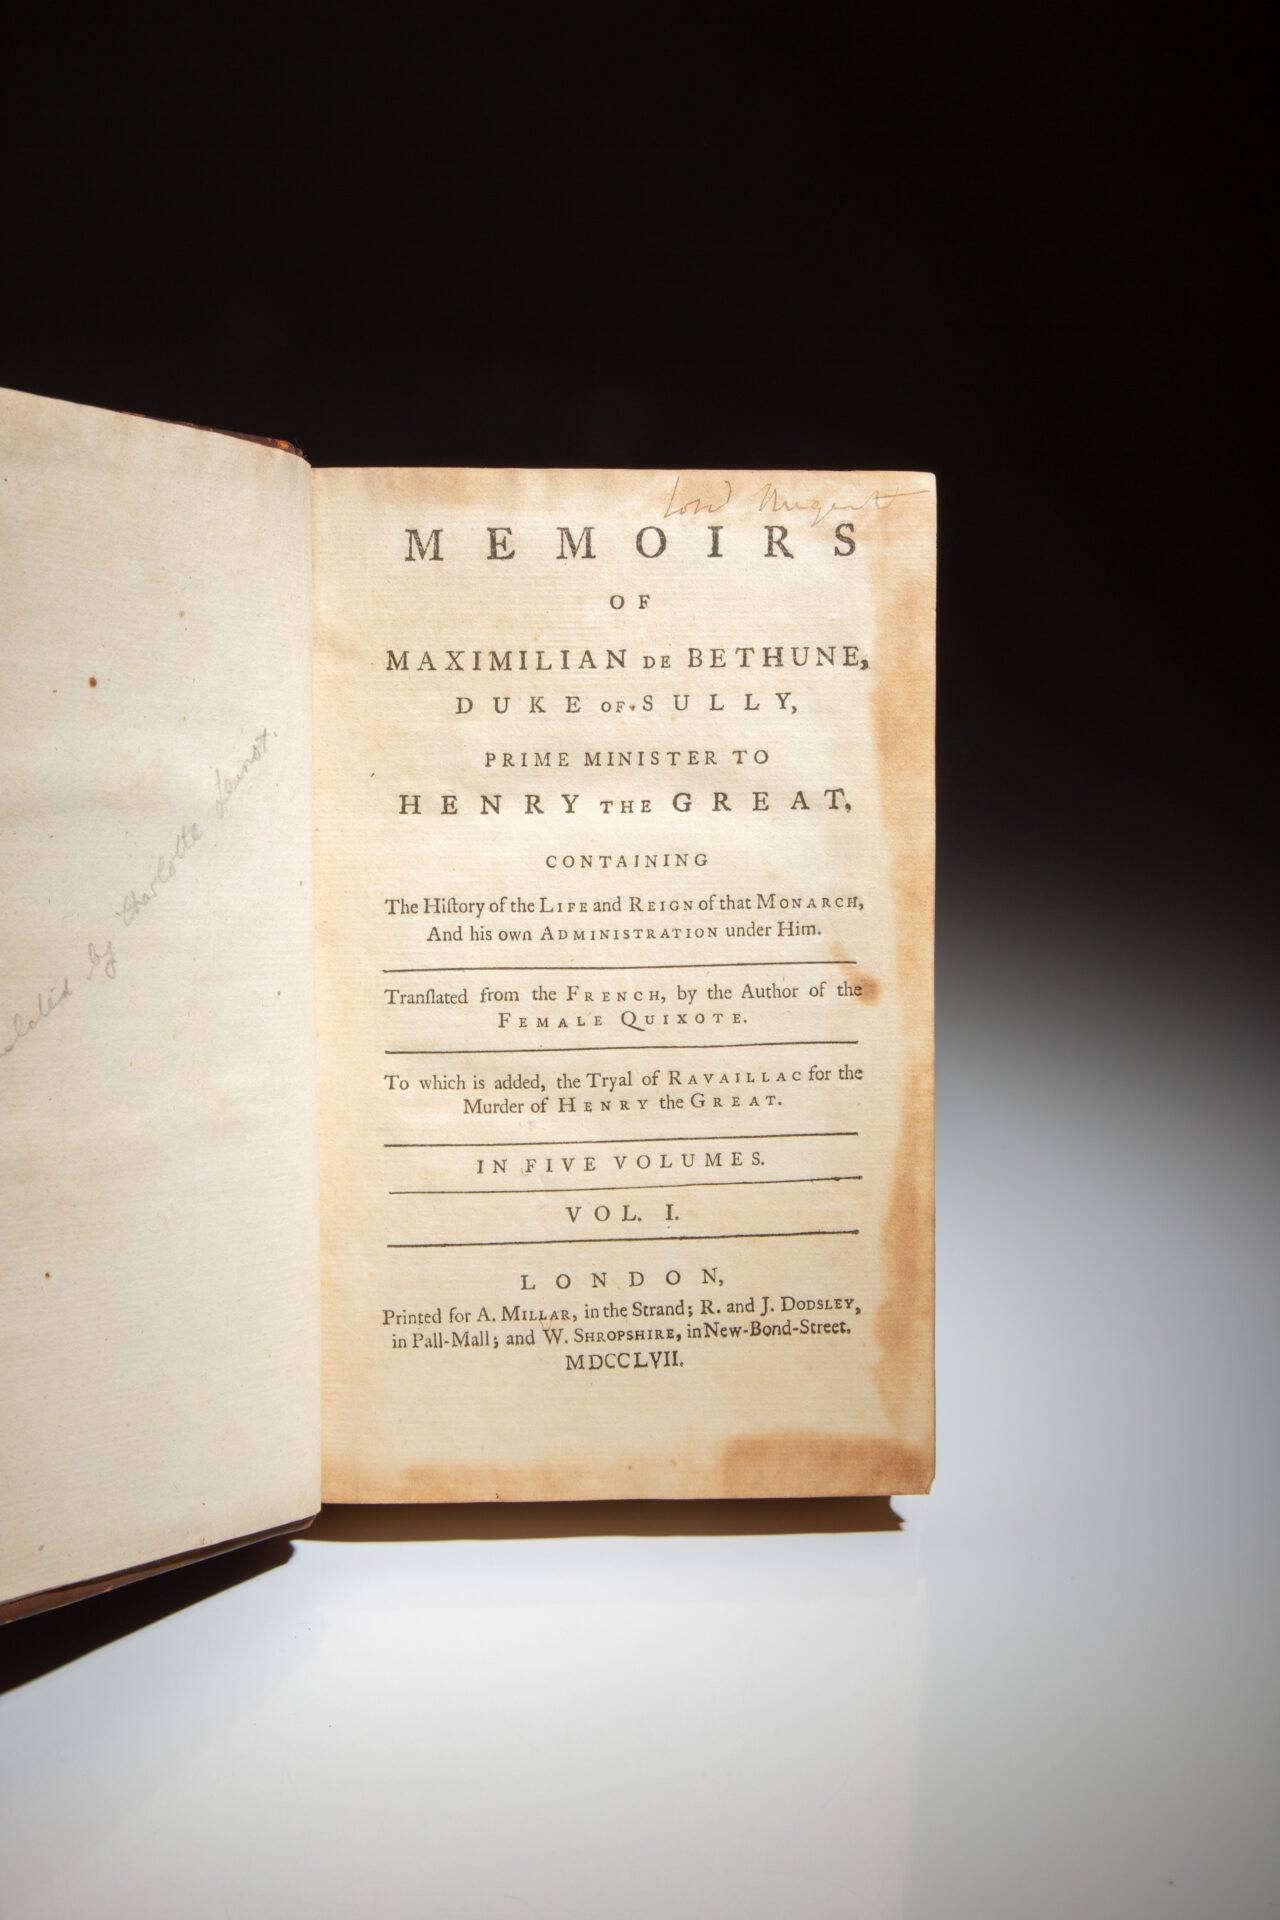 by Charlotte Lennox.
Lord Nugent
MEMOIRS
OF
MAXIMILIAN DE BETHUNE,
DUKE OF SULLY,
PRIME MINISTER TO
HENRY THE GREAT,
CONTAINING
The Hiſtory of the LIFE and REIGN of that MONARCH,
And his own ADMINISTRATION under Him.
Tranſlated from the FRENCH, by the Author of the
FEMALE QUIXOTE.
To which is added, the Tryal of RAVAILLAC for the
Murder of HENRY the GREAT.
IN FIVE VOLUMES.
VOL. I.
LONDON,
Printed for A. MILLAR, in the Strand; R. and J. DODSLEY,
in Pall-Mall; and W. SHROPSHIRE, in New-Bond-Street.
MDCCLVII.